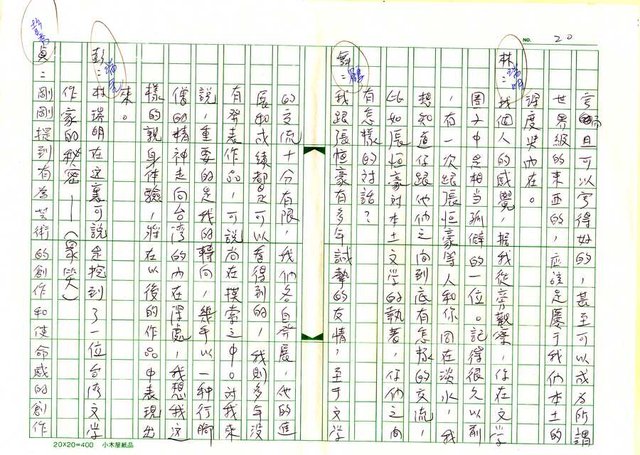 NO. 20
日可以寫得好的，甚至可以成为所謂
世界級的東西的，應該是屬于我们本土的
深度與内在。
林瑞明：我個人的感覺，据我從旁觀察，你在文学
圈子中是相当孤僻的一位。記得很久以前
，有一次跟張恒豪等人和你同在淡水，我
想知道你跟他们之间到底有怎樣的交流，
比如張恒豪对本土文学的執著，你们之间
有怎樣的对話？
：我跟張恒豪有多年誠摯的友情，至于文学
的交流十分有限，我们各自發展，他的進
展和成績都是可以看得到的，我則多年没
有發表作品，可説尚在摸索之中。对我来
説，重要的是我的轉向，幾乎以一种行腳
僧的精神走向台湾的内在深處，我想我这
樣的親身体驗，將在以後的作品中表現出
來。
彭瑞金：林瑞明在这裏可説是挖到了一位台湾文学
作家的秘密——（眾笑）
：剛剛提到有為芸術的創作和使命感的創作
20×20=400 小木屋紙品